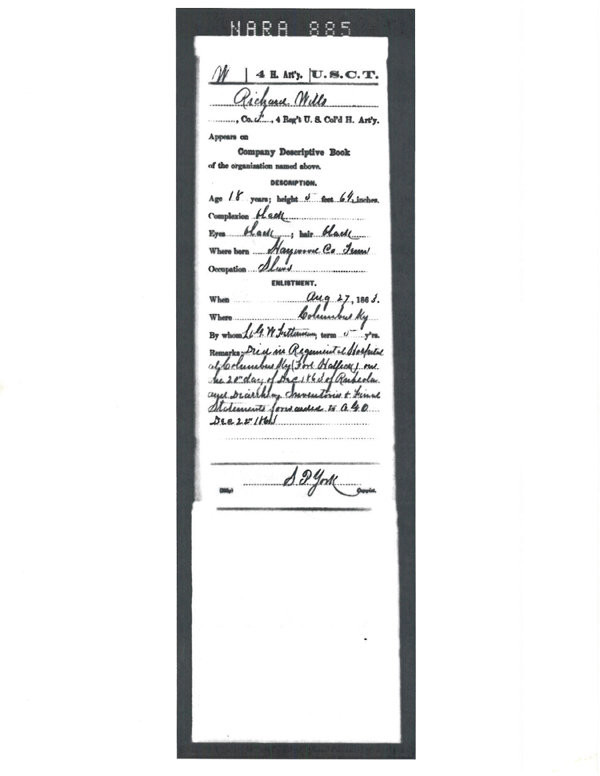 NARA 885
W | 4 H. Art'y. | U.S.C.T.
Richard Wills
, Co. , 4 Reg't U. S. Col'd H. Art'y.
Appears on
Company Descriptive Book
of the organization named above.
DESCRIPTION.
Age 18 years; height 5 feet inches.
Complexion black
Eyes black ; hair black
Where born Haywood Co Tenn
Occupation Slave
ENLISTMENT.
When Aug 27, 1863.
Where Columbus Ky
By whom Lt G. W. ; term 5 y'rs.
Remarks: Died in Regimental Hospital
at Columbus Ky (Fort Halleck) on
the 20 day of Dec 1863 of Rubeola
and Diarrhea Inventories & Final
Statements forwarded to A.G.O.
Dec 186
S. P. York
Copyist.